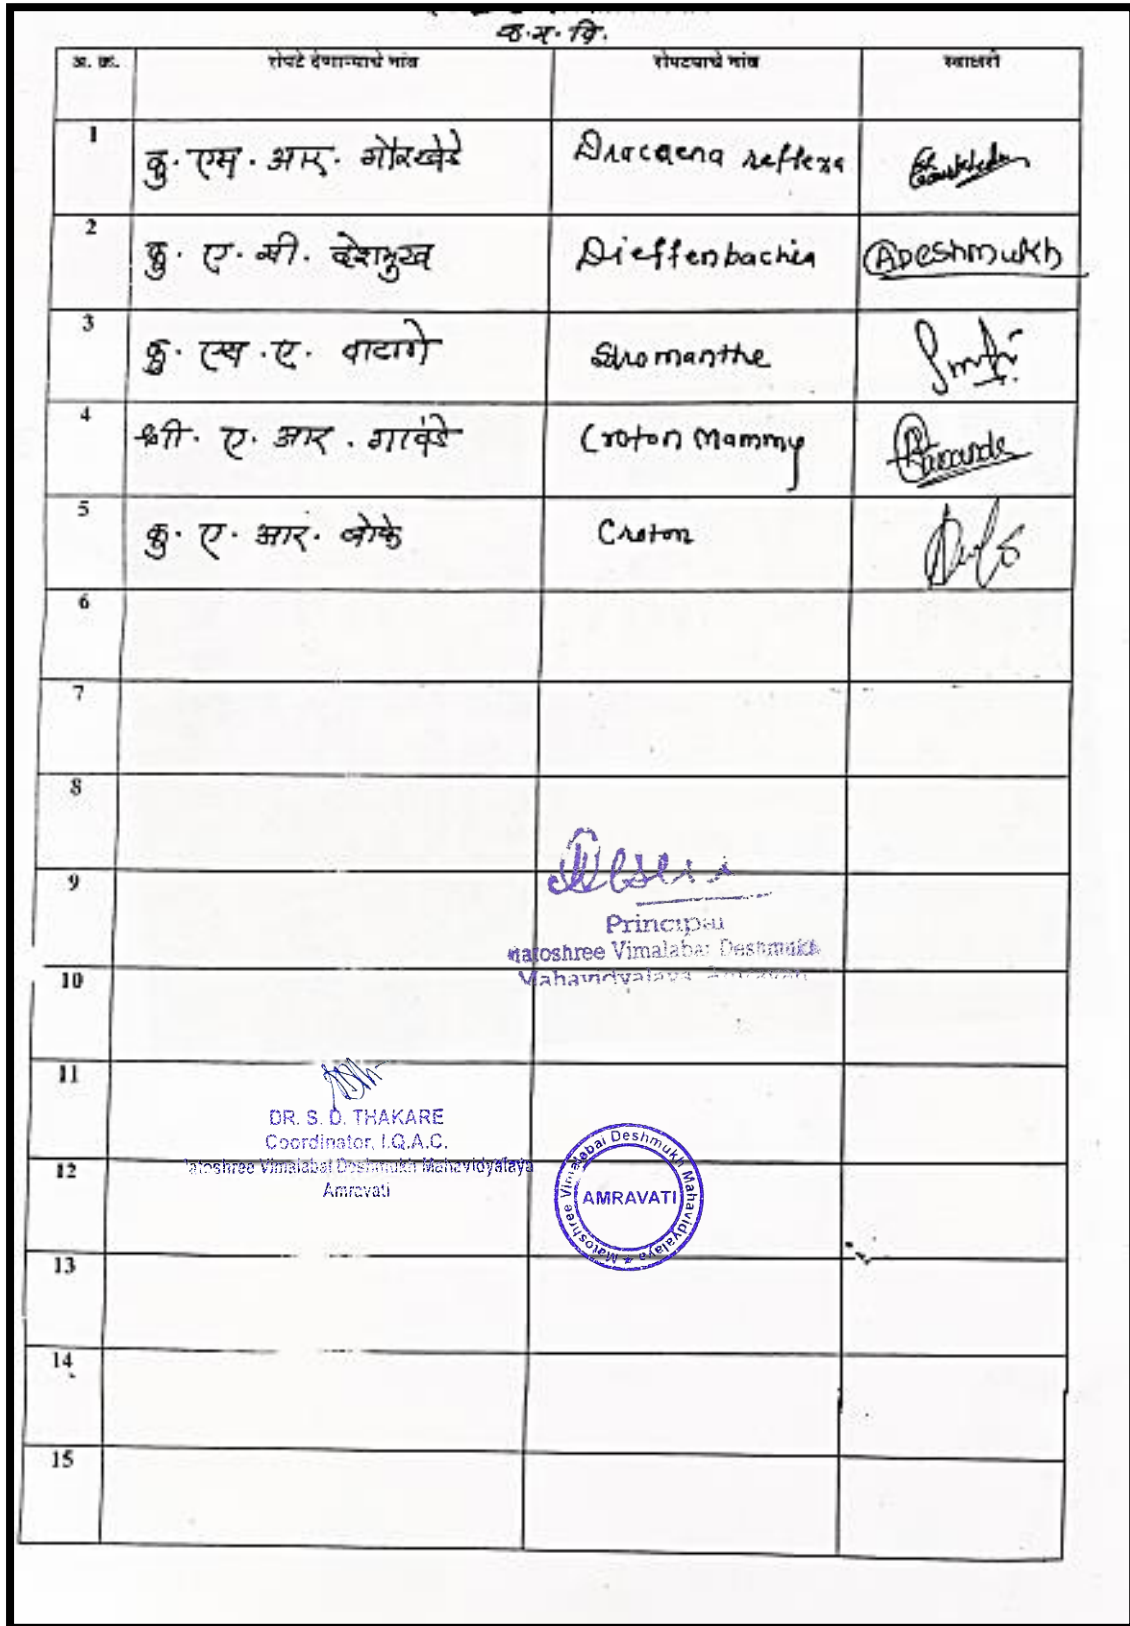 क.म.वि.
अ. क्रं. रोपटे देणाऱ्याचे नांव रोपटयाचे नांव स्वाक्षरी
1 कु. एम. आर. गोरखेडे Dracaena reflexa
2 कु. ए. सी. देशमुख Dieffenbachia ADeshmukh
3 कु. एस. ए. वाटाणे Stromanthe
4 श्री. ए. आर. गावंडे Croton Mammy
5 कु. ए. आर. बोके Croton
6
7
8
9
Principal
Matoshree Vimalabai Deshmukh
10 Mahavidyalaya Amravati
11
DR. S. D. THAKARE
Coordinator, I.Q.A.C.
12 Matoshree Vimalabai Deshmukh Mahavidyalaya
Amravati
Matoshree Vimalabai Deshmukh Mahavidyalaya *
AMRAVATI
13
14
15